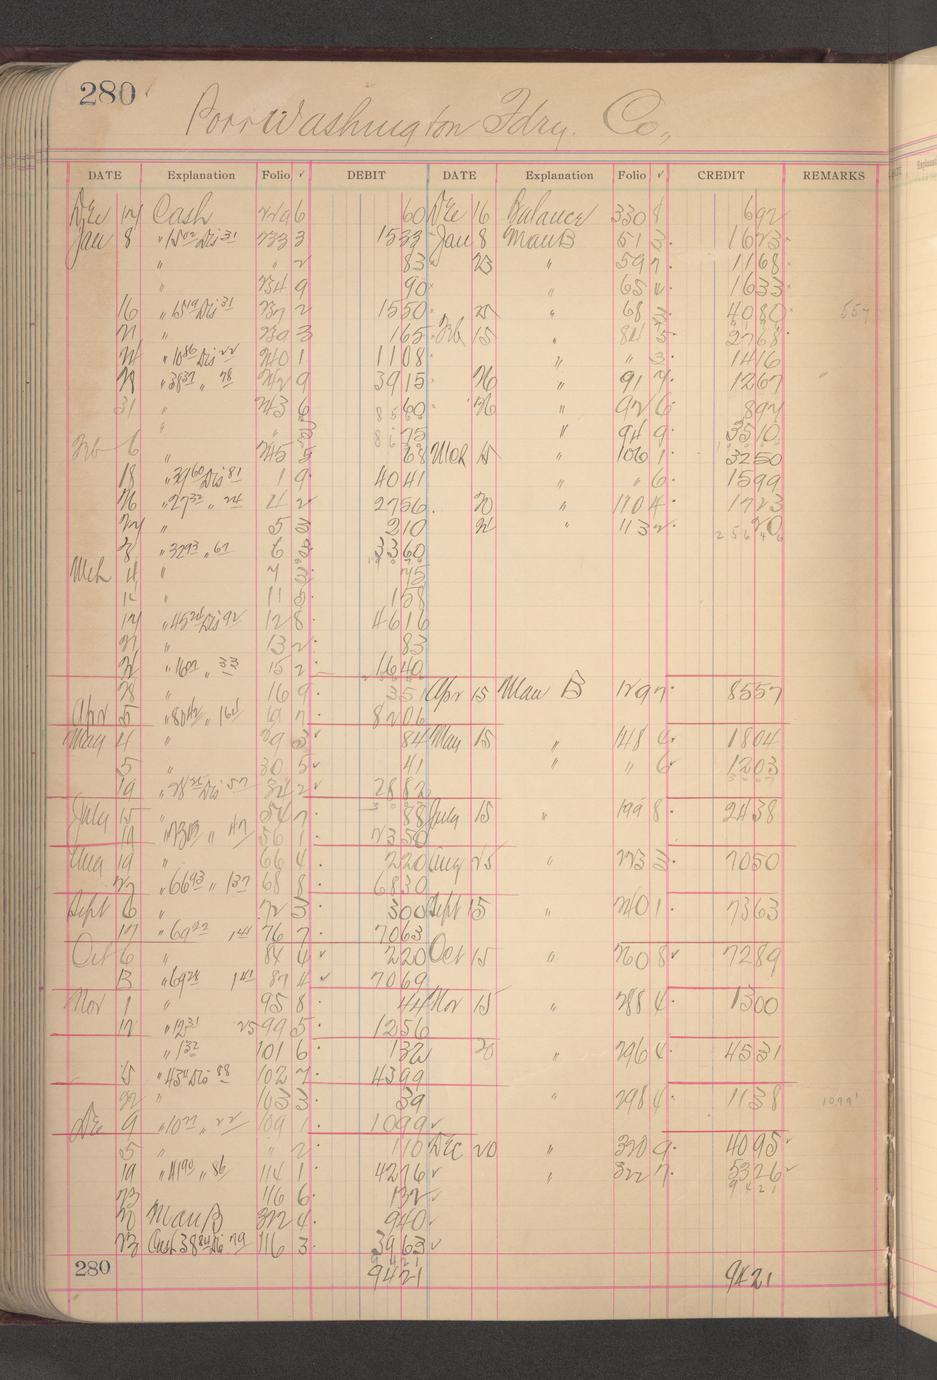 280
Port Washington Fdry. Co.,
DATE Explanation Folio √ DEBIT DATE Explanation Folio √ CREDIT REMARKS
Dec 17 Cash 229 6 60 Dec 16 Balance 330 8 692
Jan 8 " 1502 Dis 31 233 3 1533 Jan 8 ManB 51 3 1623
" " 2 83 23 " 59 7 1168
" 234 9 90 " 65 1633
16 " 1519 Dis 31 237 2 1550 25 " 68 3 4080 557
21 " 239 3 165 Feb 15 84 5 2768
24 " 1086 Dis 22 240 1 1108 " " 3 1416
28 " 3837 " 78 242 9 3915 26 " 91 7 1267
31 " 243 6 60 26 " 92 6 897
" " 75 " 94 9 3510
Feb 6 " 245 68 Mch 15 106 1 3250
18 " 3960 Dis 81 1 9 4041 " " 6 1599
26 " 2732 " 24 4 2 2756 20 " 110 4 1723
27 " 5 3 210 21 " 113 2 20
28 " 3293 " 67 6 3360
Mch 4 " 7 3 75
12 " 11 5 158
17 " 4524 Dis 92 12 8 4616
21 " 13 2 83
" 1607 " 33 15 2 1640
28 " 16 9 351 Apr 15 Man B 129 7 8557
Apr 5 " 8042 " 164 19 7 8206
May 4 " 29 3 84 May 15 " 148 4 1804
5 " 30 5 41 " " 6 1203
19 " 2825 Dis 57 32 2 2882
July 15 " 54 7 88 July 15 " 199 8 2438
19 " 2303 " 47 56 1 2350
Aug 19 " 66 4 220 Aug 25 " 223 3 7050
27 " 6693 " 137 68 8 6830
Sept 6 " 72 3 300 Sept 15 " 240 1 7363
17 " 6922 141 76 7 7063
Oct 6 " 84 4 220 Oct 15 " 260 8 7289
13 " 6928 141 87 4 7069
Nov 1 " 95 8 44 Nov 15 " 288 4 1300
12 " 1231 25 99 5 1256
" 132 101 6 132 20 " 296 4 4531
15 " 4311 Dis 88 102 7 4399
22 " 103 3 39 " 298 4 1138 1099
Dec 9 " 1077 " 22 109 1 1099
5 " " 2 110 Dec 20 " 320 9 4095
19 " 4190 " 86 114 1 4276 " 322 7 5326
23 116 6 132 9421
20 ManB 322 4 940
23 Cash 3884 Dis 79 116 3 3963
280 9421 9421